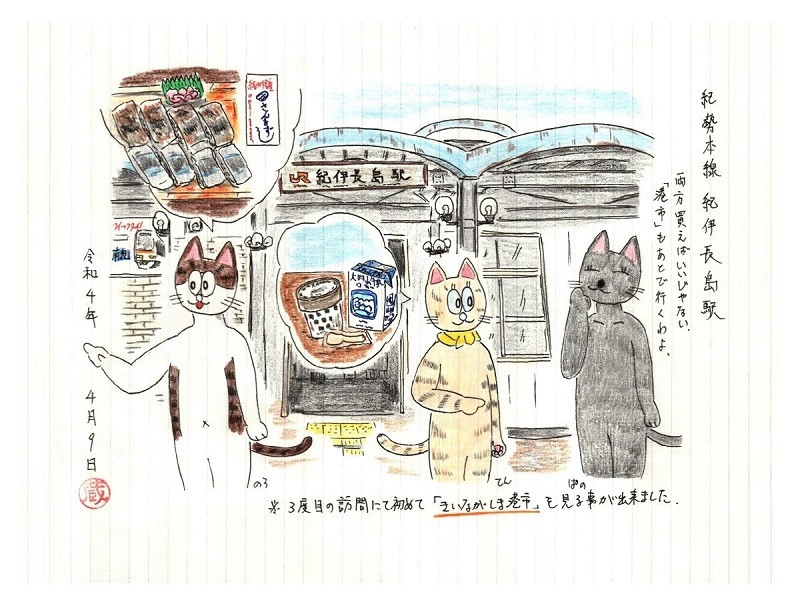 紀勢本線 紀伊長島駅
両方買えばいいじゃない、
「港市」もあとで行くわよ、
さんますし
JR 紀伊長島駅
令和4年 4月9日
蔵
のろ
てん
ぱの
※3度目の訪問にて初めて「きいながしま港市」を見る事が出来ました.